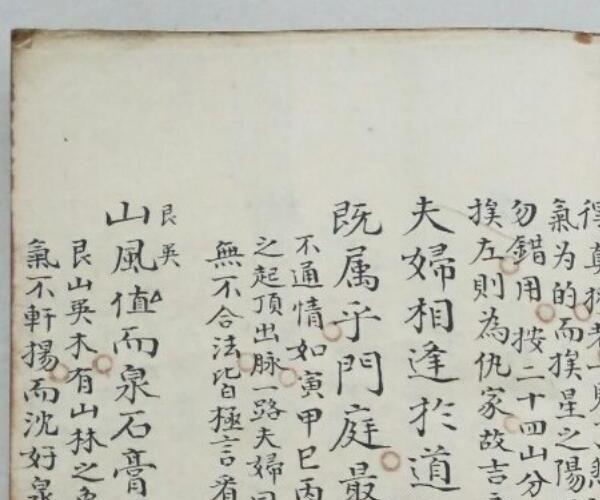 得真
氣为的而挨星之陽
勿錯用按二十四山分
挨左則為仇家故吉
夫婦相逢於道
既属乎門庭最
不通情如寅甲巳丙
之起頂出脉一路夫婦同
無不合法皆極言看
艮巽
山風值而泉石膏
艮山巽木有山林之象
氣不軒揚而沈好泉